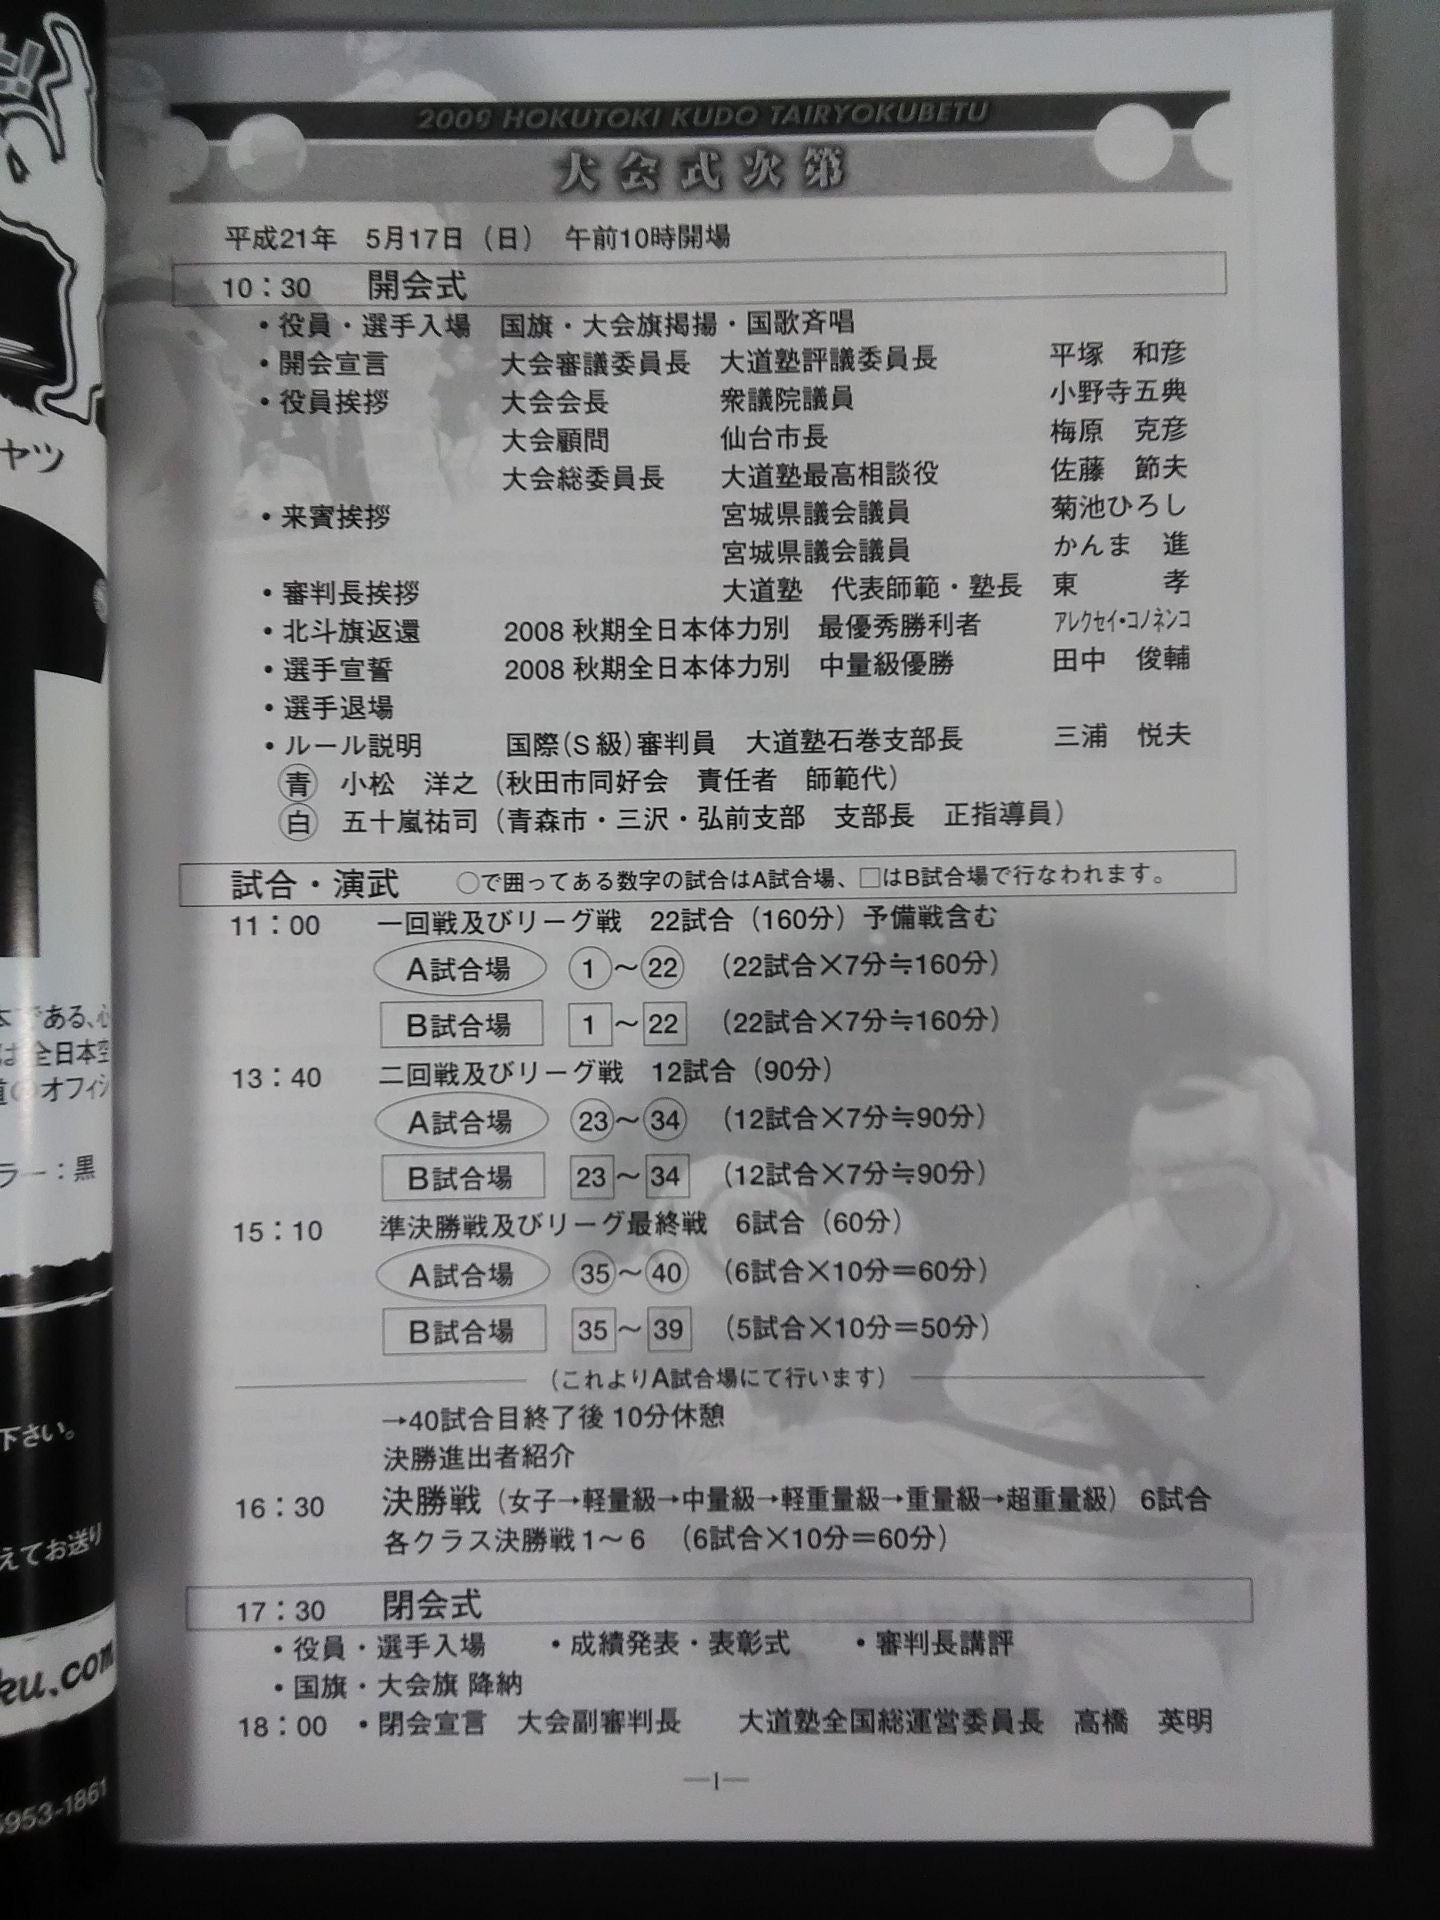 2009 HOKUTOKI KUDO TAIRYOKUBETU
大会式次第
平成21年 5月17日（日） 午前10時開場
10：30 開会式
・役員・選手入場 国旗・大会旗掲揚・国歌斉唱
・開会宣言 大会審議委員長 大道塾評議委員長 平塚 和彦
・役員挨拶 大会会長 衆議院議員 小野寺五典
大会顧問 仙台市長 梅原 克彦
大会総委員長 大道塾最高相談役 佐藤 節夫
・来賓挨拶 宮城県議会議員 菊池ひろし
宮城県議会議員 かんま 進
・審判長挨拶 大道塾 代表師範・塾長 東 孝
・北斗旗返還 2008 秋期全日本体力別 最優秀勝利者 アレクセイ・コノネンコ
・選手宣誓 2008 秋期全日本体力別 中量級優勝 田中 俊輔
・選手退場
・ルール説明 国際（S 級）審判員 大道塾石巻支部長 三浦 悦夫
青 小松 洋之（秋田市同好会 責任者 師範代）
白 五十嵐祐司（青森市・三沢・弘前支部 支部長 正指導員）
試合・演武 ○で囲ってある数字の試合はA試合場、□はB試合場で行なわれます。
11：00 一回戦及びリーグ戦 22試合（160分）予備戦含む
A試合場 ①～㉒ （22試合×7分≒160分）
B試合場 1～22 （22試合×7分≒160分）
13：40 二回戦及びリーグ戦 12試合（90分）
A試合場 ㉓～㉞ （12試合×7分≒90分）
B試合場 23～34 （12試合×7分≒90分）
15：10 準決勝戦及びリーグ最終戦 6試合（60分）
A試合場 ㉟～㊵ （6試合×10分＝60分）
B試合場 35～39 （5試合×10分＝50分）
（これよりA試合場にて行います）
→40試合目終了後 10分休憩
決勝進出者紹介
16：30 決勝戦（女子→軽量級→中量級→軽重量級→重量級→超重量級） 6試合
各クラス決勝戦 1～6 （6試合×10分＝60分）
17：30 閉会式
・役員・選手入場 ・成績発表・表彰式 ・審判長講評
・国旗・大会旗 降納
18：00 ・閉会宣言 大会副審判長 大道塾全国総運営委員長 高橋 英明
―1―
ヤツ
本である、心
全日本空
オフィシ
ラー：黒
下さい。
えてお送り
ku.com
5953-1861